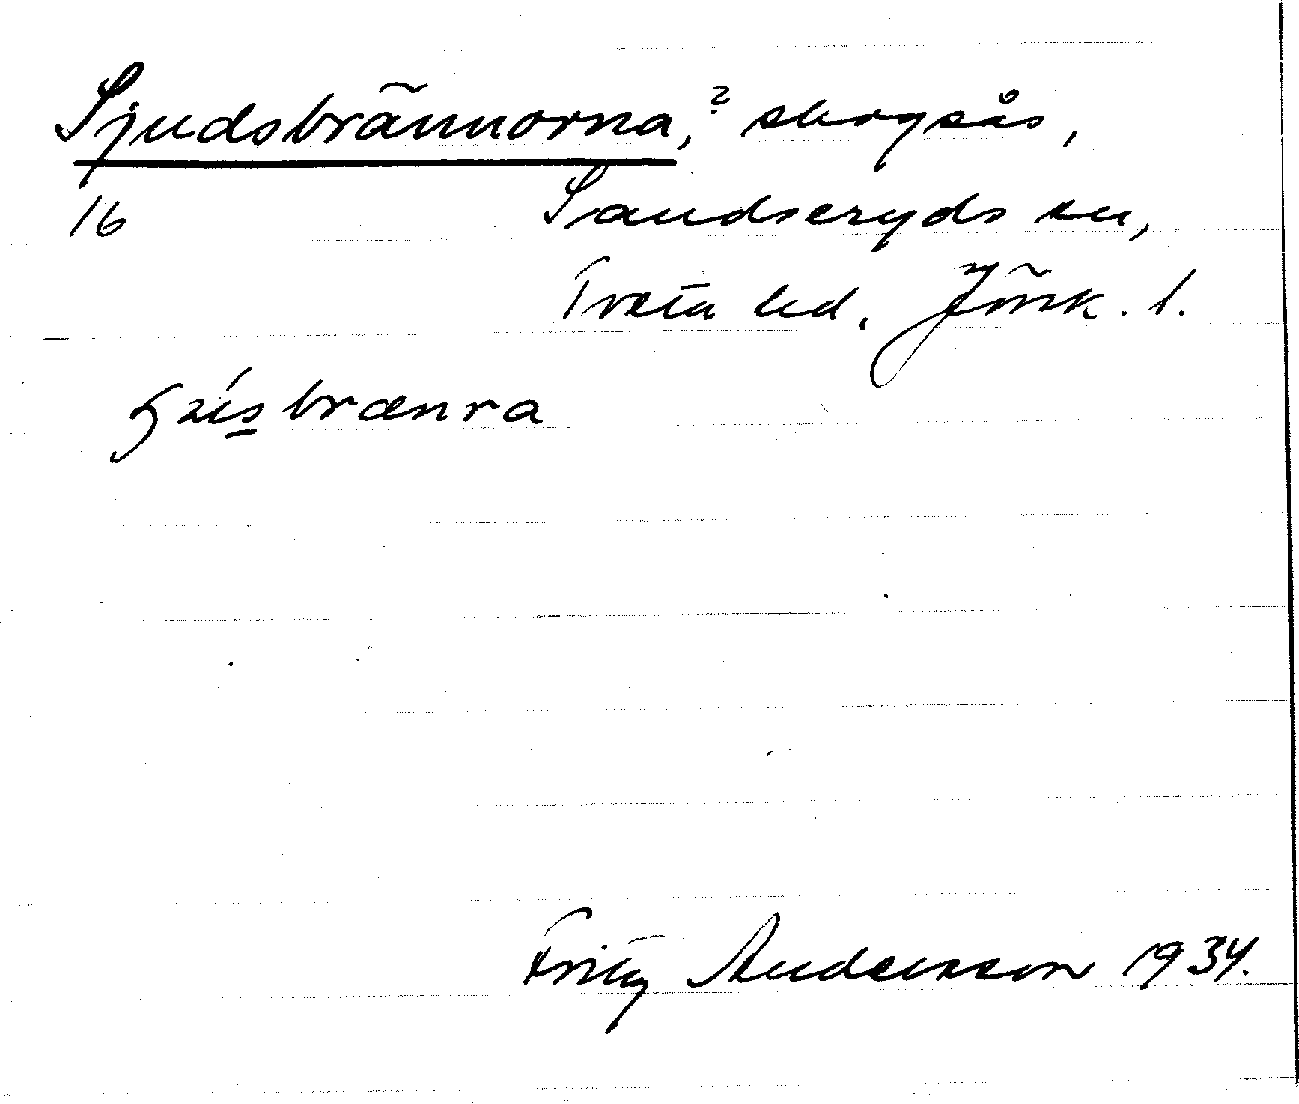 Sjudsbrännorna,? skogsås,
16 Sandseryds sn,
Tveta hd. Jönk. l.
brænra
Fritz Andersson 1934.